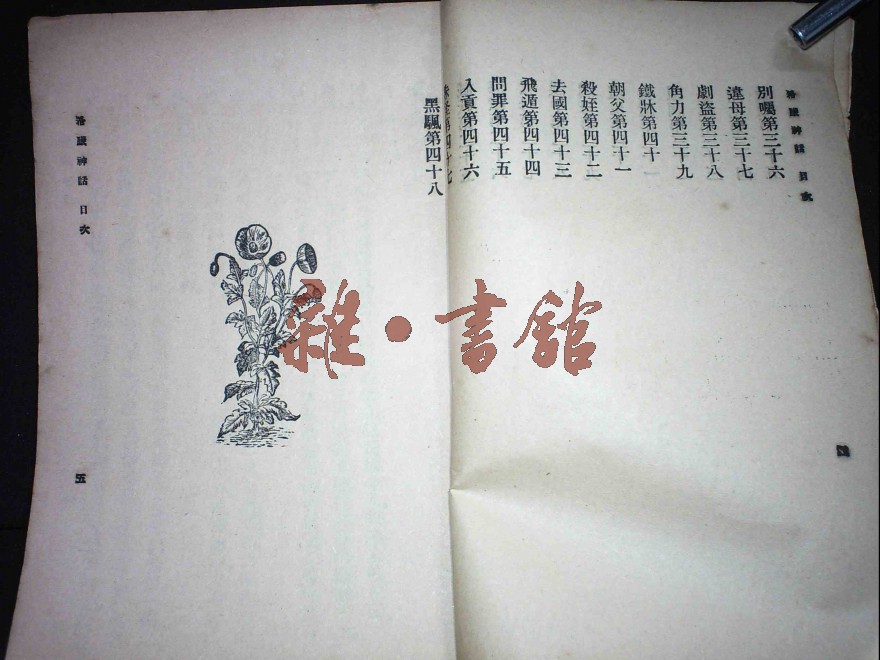 希臘神話 目次
別囑第三十六
違母第三十七
劇盜第三十八
角力第三十九
鐵牀第四十
朝父第四十一
殺姪第四十二
去國第四十三
飛遁第四十四
問罪第四十五
入貢第四十六
第四十七
黑颿第四十八
四
希臘神話 目次
五
雜·書館